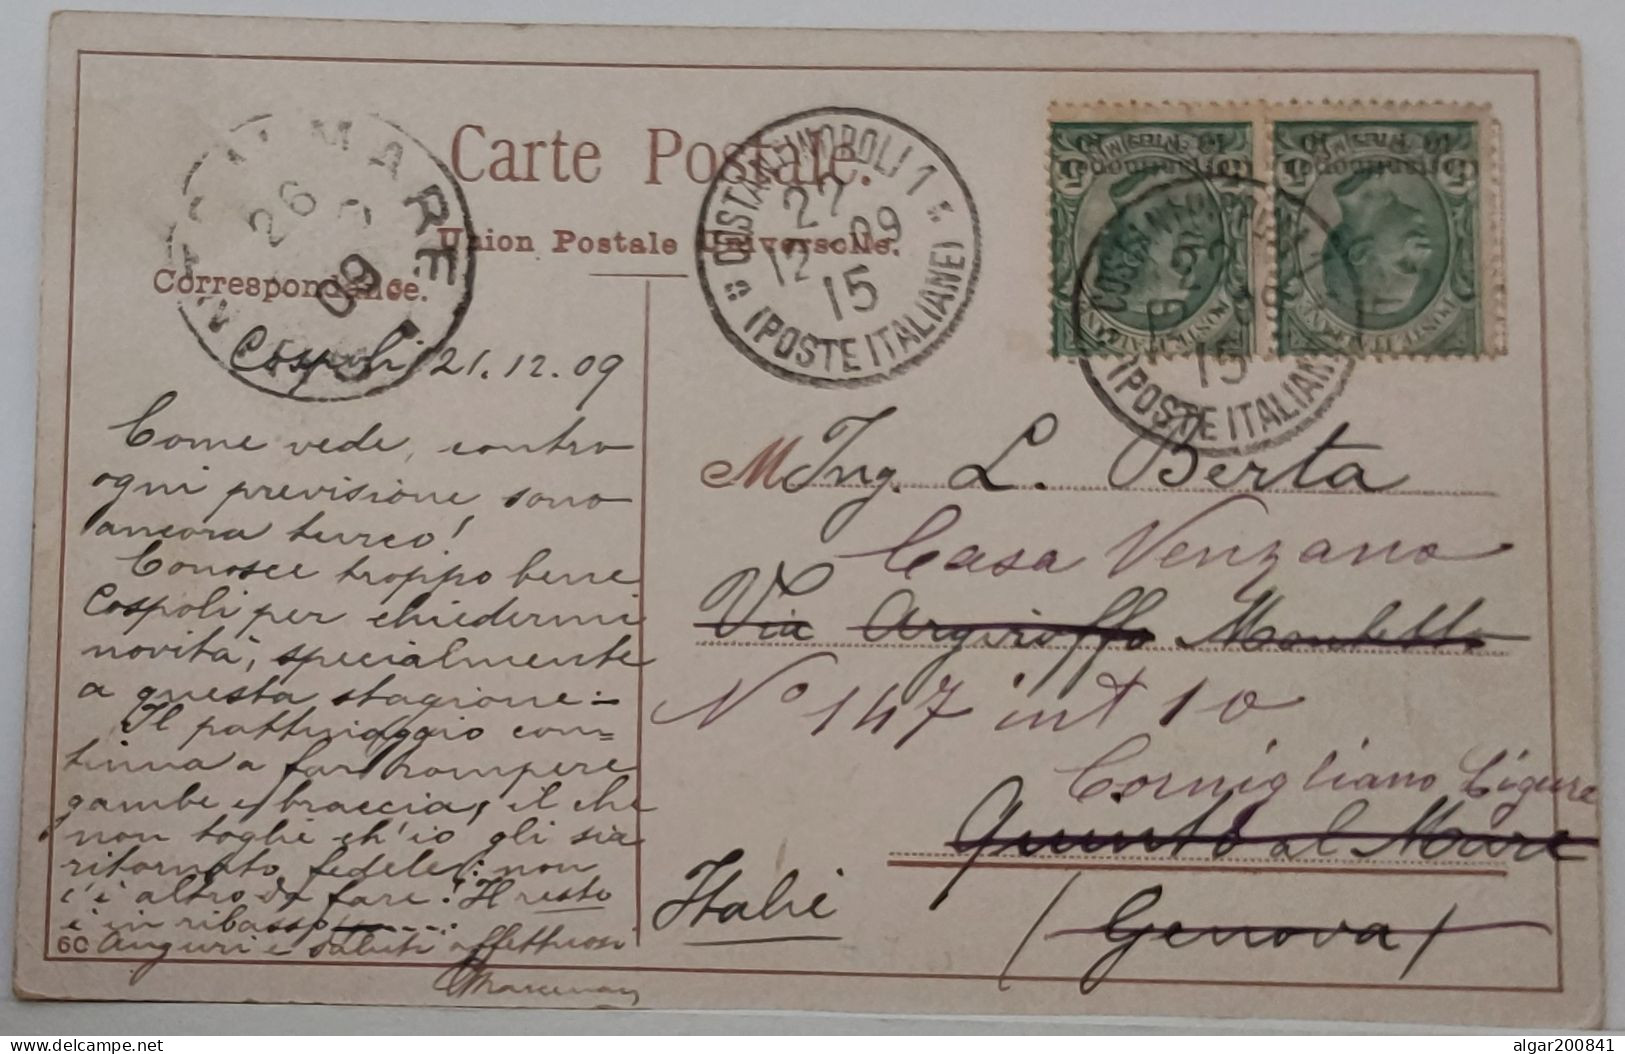 Carte Postale.
Union Postale Universelle.
Correspondance.
COSTANTINOPOLI 1
22
12 09
15
(POSTE ITALIANE)
MARE
26
09
COSTANTINOPOLI
22
15
(POSTE ITALIANE)
Cospoli 21.12.09
Come vede, contro
ogni previsione sono
ancora turco!
Conosce troppo bene
Cospoli per chiedermi
novità, specialmente
a questa stagione:-
Il pattinaggio con=
tinua a far rompere
gambe e braccia, il che
non toglie ch'io gli sia
ritornato fedele: non
c'è altro da fare! Il resto
è in ribasso
Auguri e saluti affettuosi
6C
M Ing. L. Berta
Casa Venzano
Via Argiroffo
No 147 int 10
Cornigliano Ligure
Quinto al Mare
(Genova)
Italie
algar200841